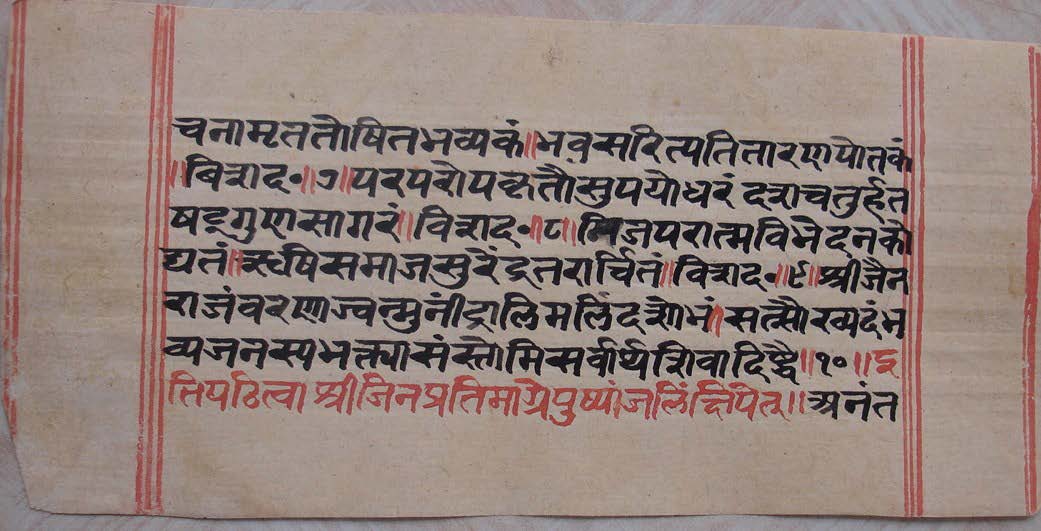 चनामृततोषितभव्यकं॥भवसरित्पतितारणपोतकं
॥विशद॰॥७॥परपरोपकृतौसुपयोधरंदशचतुर्हत
षड्गुणसागरं॥विशद॰॥८॥निजपरात्मविभेदनको
द्यतं॥ऋषिसमाजसुरेंद्रतरार्चितं॥विशद॰॥९॥श्रीजैन
राजंवरणोज्वन्मुनींद्रालिमलिंदशोभं॥सत्सौख्यदंभ
व्यजनस्यभक्त्यासंस्तोमिसर्वार्थशिवादिध्द्यै॥१०॥इ
तिपठित्वाश्रीजिनप्रतिमाग्रेपुष्पांजलिंक्षिपेत्॥अनंत